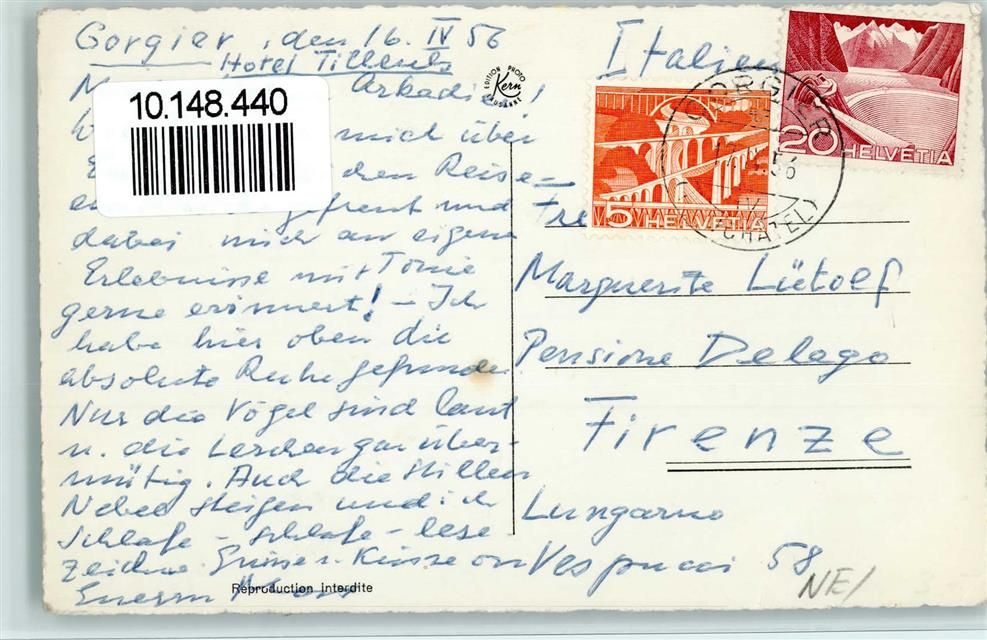 Gorgier, den 16. IV 56
Hotel Tilleuls
Arkadie!
mich über
Reise-
gefreut und
dabei mich an eigene
Erlebnisse mit Tonie
gerne erinnert! – Ich
habe hier oben die
absolute Ruhe gefunden
Nur die Vögel sind laut
u. die Lerchen gar über-
mütig. Auch die stillen
Nebel steigen und ich
schlafe – schlafe – lese
zeichne. Grüsse u. Küsse von
Eurem
Reproduction interdite
10.148.440
EDITION PHOTO
Kern
LAUSANNE
Italien
5 HELVETIA
20 HELVETIA
GORGIER
56
Marguerite Lütolf
Pensione Delago
Firenze
Lungarno
Vespucci 58
NE/
3